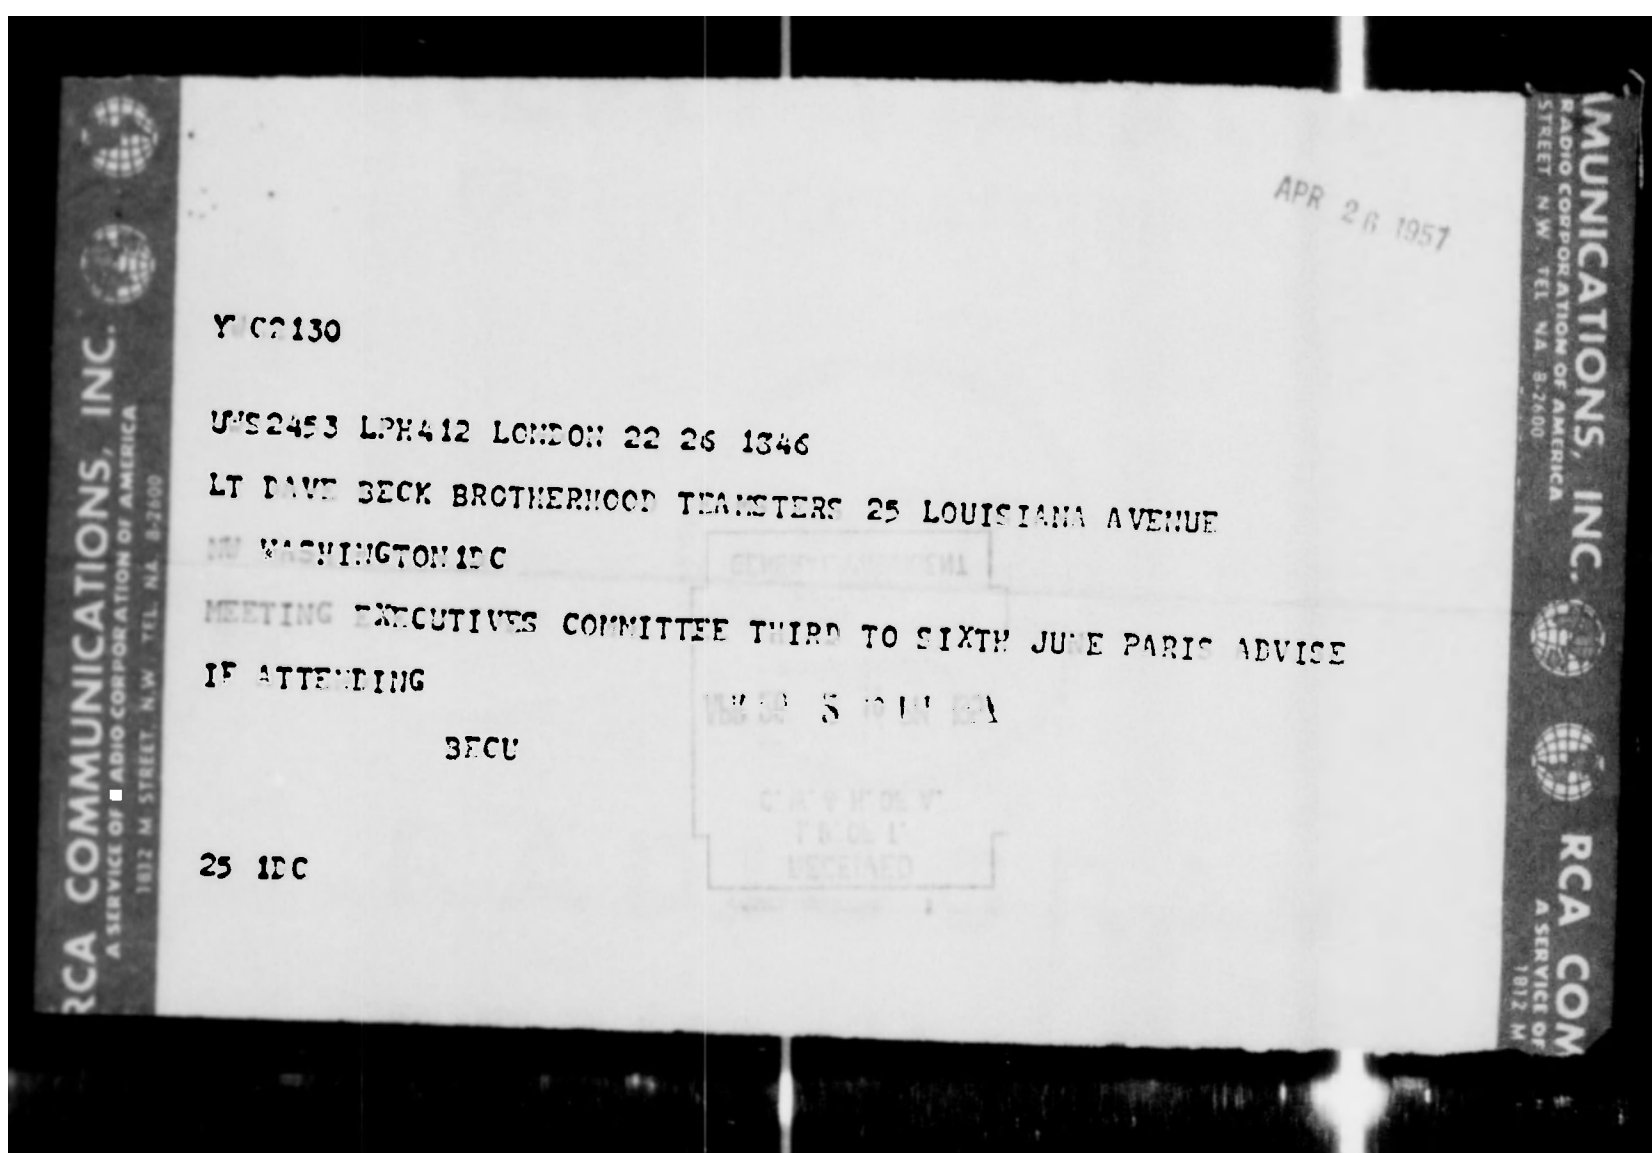 RCA COMMUNICATIONS, INC.
A SERVICE OF RADIO CORPORATION OF AMERICA
1812 M STREET, N.W. TEL. NA. 8-2600
APR 26 1957
YWC2130
UWS2453 LPH412 LONDON 22 26 1846
LT DAVE BECK BROTHERHOOD TEAMSTERS 25 LOUISIANA AVENUE
NW WASHINGTON1DC
MEETING EXECUTIVES COMMITTEE THIRD TO SIXTH JUNE PARIS ADVISE
IF ATTENDING
BECU
25 1DC
RECEIVED
MMUNICATIONS, INC.
RADIO CORPORATION OF AMERICA
STREET N.W. TEL NA 8-2600
RCA COM
A SERVICE OF
1812 M